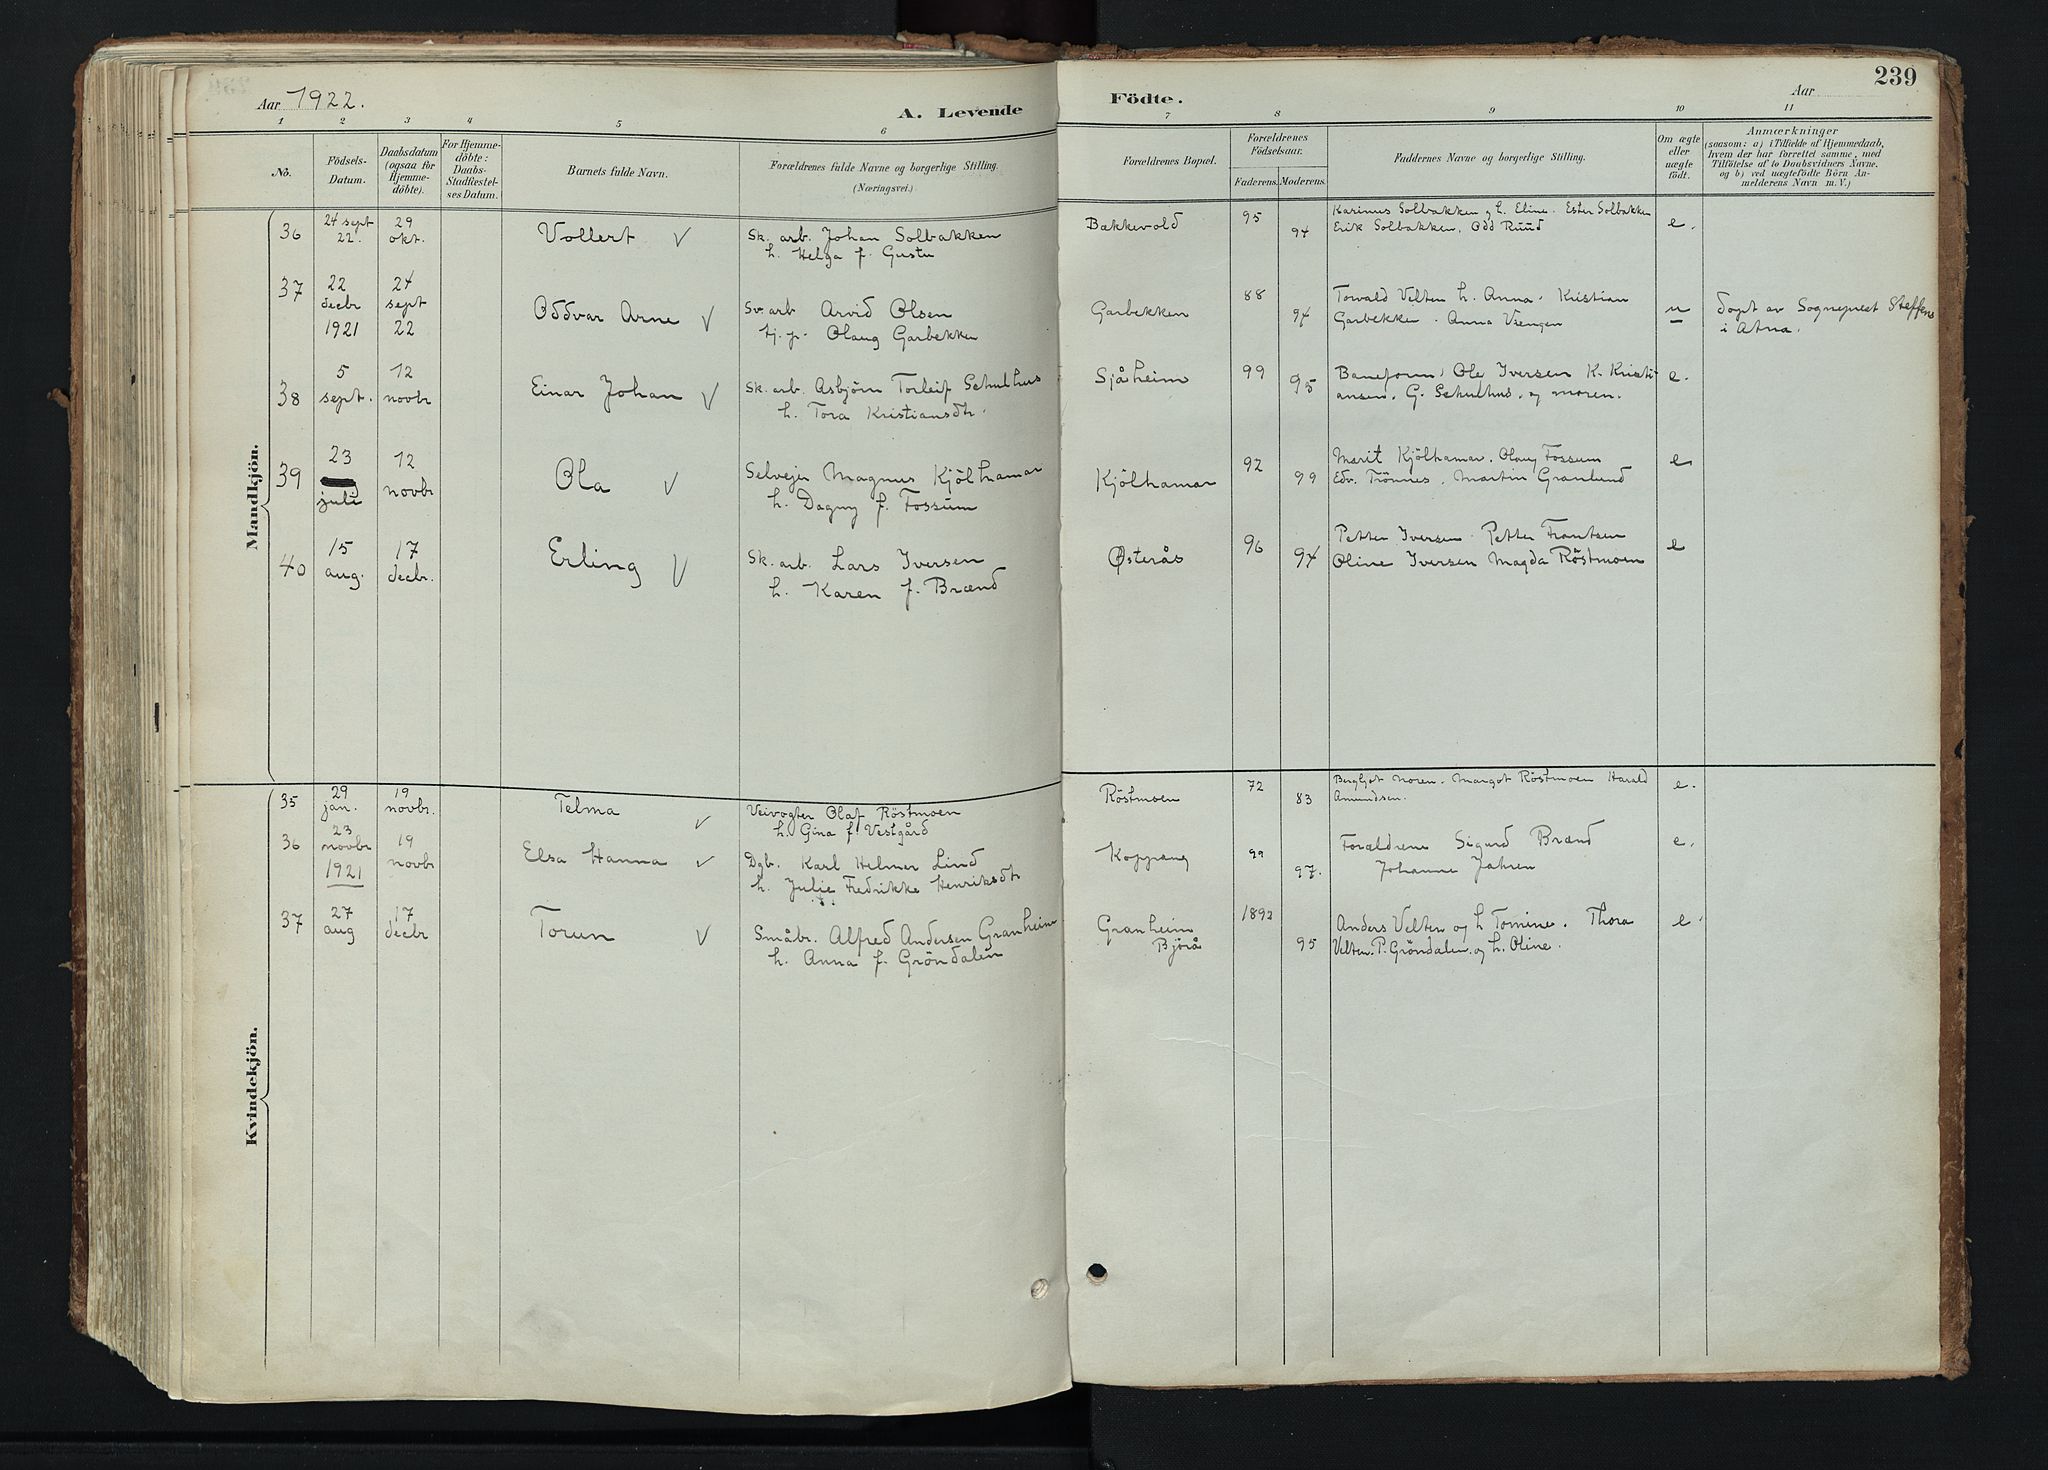 Aar 1922.
A. Levende
Födte.
Aar
239
1 2 3 4 5 6 7 8 9 10 11
No.
Födsels-
Datum.
Daabsdatum
(ogsaa for
Hjemme-
döbte).
For Hjemme-
döbte:
Daabs-
Stadfæstel-
ses Datum.
Barnets fulde Navn.
Forældrenes fulde Navne og borgerlige Stilling.
(Næringsvei.)
Forældrenes Bopæl.
Forældrenes
Födselsaar.
Faderens. Moderens.
Faddernes Navne og borgerlige Stilling.
Om ægte
eller
uægte
födt.
Anmærkninger
(saasom: a) i Tilfælde af Hjemmedaab,
hvem der har forrettet samme, med
Tilföielse af to Daabsvidners Navne,
og b) ved uægtefödte Börn An-
melderens Navn m. V.)
Mandkjön.
36
24 sept
22.
29
okt.
Vollert √
Sk. arb. Johan Solbakken
h. Helga f. Gustu
Bækkevold
95
94
Karinus Solbakken og h. Eline. Ester Solbakken
Erik Solbakken, Odd Ruud
e.
37
22
decbr
1921
24
sept
22
Oddvar Arne √
Sv arb Arvid Olsen
tj. p. Olaug Garbekken
Garbekken
88
94
Torvald Velten h. Anna. Kristian
Garbekken. Anna Vængen
u
döpt av Sogneprest Steffens
i Atna.
38
5
sept.
12
novbr
Einar Johan √
Sk. arb. Asbjörn Torleif Schulhus
h. Tora Kristiansdtr.
Sjåheim
99
95
Baneform. Ole Iversen K. Kristi-
ansen. G. Schulhus. og moren.
e.
39
23
juli
12
novbr
Ola √
Selvejer Magnus Kjölhamar
h. Dagny f. Fossum
Kjölhamar
92
99
Marit Kjölhamar. Olaug Fossum
Edv. Trönnes. Martin Granlund
e
40
15
aug.
17
decbr.
Erling √
Sk. arb. Lars Iversen
h. Karen f. Brænd
Østerås
96
94
Petter Iversen. Petter Frantsen
Oline Iversen Magda Röstmoen
e
Kvindekjön.
35
29
jan.
19
novbr.
Telma √
Veivogter Olaf Röstmoen
h. Gina f. Vestgård
Röstmoen
72
83
Bergljot Moren. Margot Röstmoen Harald
Amundsen.
e.
36
23
novbr
1921
19
novbr
Elsa Hanna √
Dgb. Karl Helmer Lind
h. Julie Fredrikke Henriksdtr
Koppang
99
97.
Forældrene Sigurd Brænd
Johanne Jahren
e.
37
27
aug
17
decbr
Torun √
Småbr. Alfred Andersen Granheim
h. Anna f. Gröndalen
Granheim
Björå
1892
95
Anders Velten og h Tomine. Thora
Velten. P. Gröndalen. og h. Oline.
e